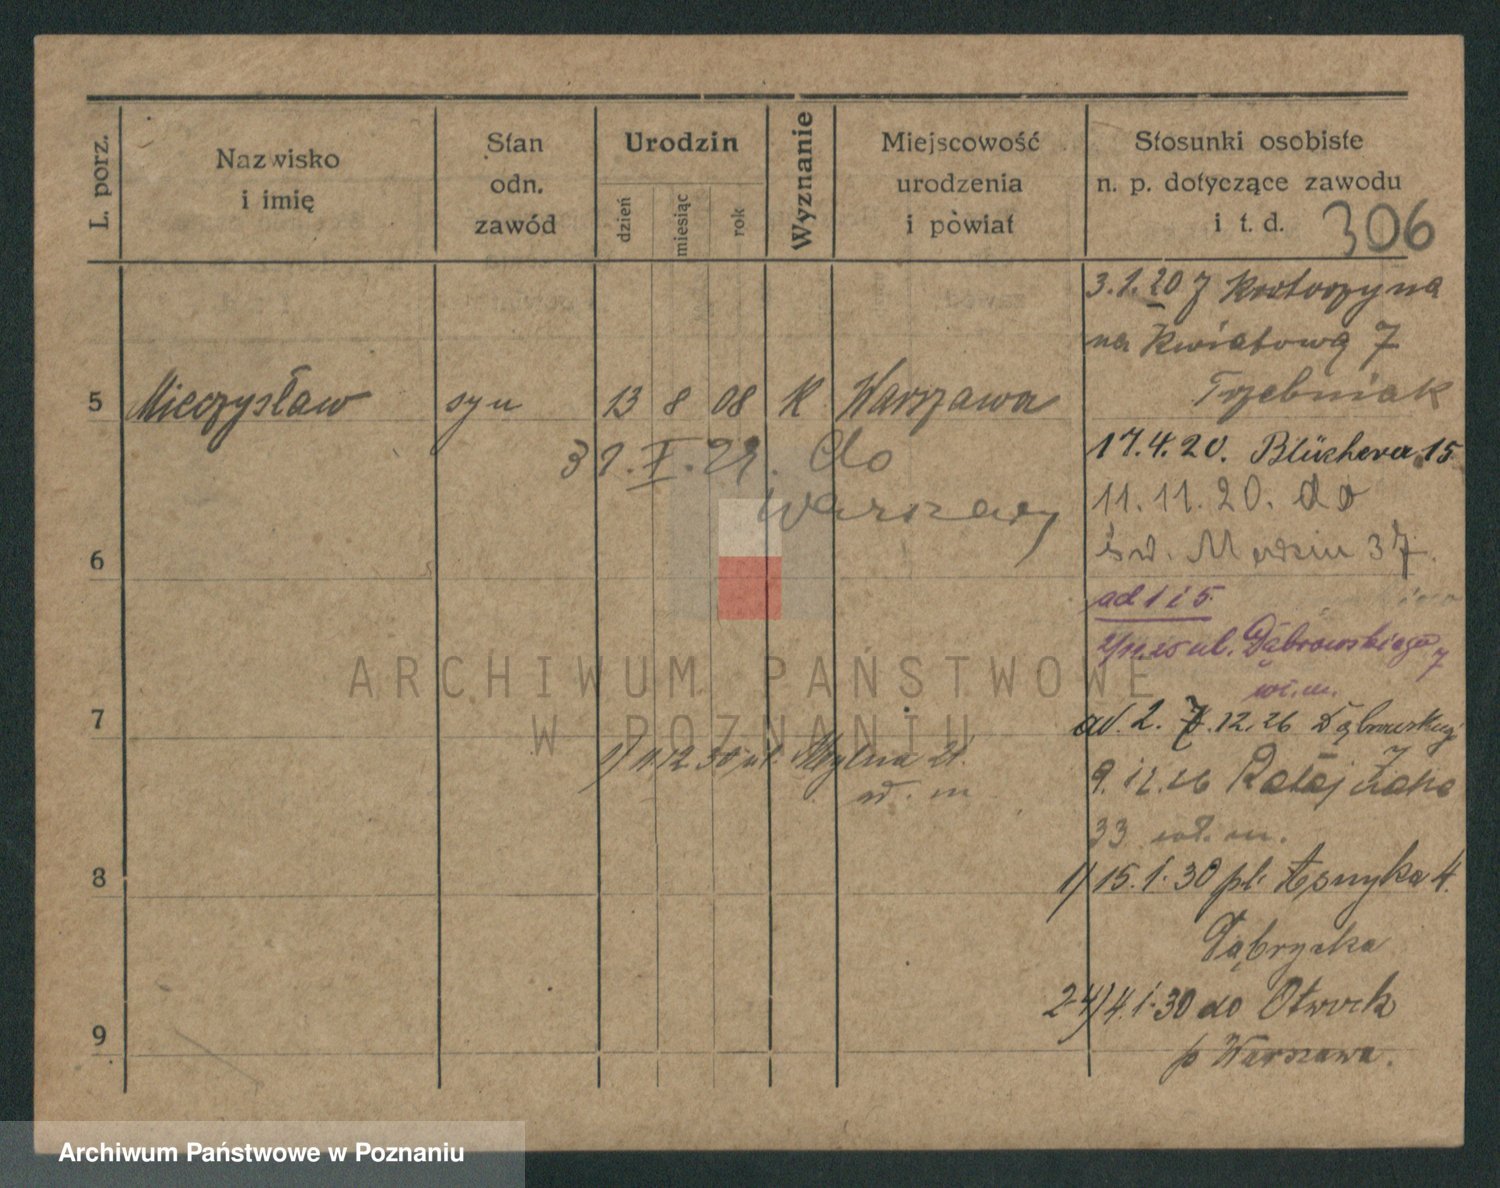 L. porz.
Nazwisko
i imię
Stan
odn.
zawód
Urodzin
dzień
miesiąc
rok
Wyznanie
Miejscowość
urodzenia
i powiat
Stosunki osobiste
n. p. dotyczące zawodu
i t. d.
306
3.1.20 z Krotoszyna
na Kwiatową 7
Trzebniak
5 Mieczysław syn 13 8 08 K Warszawa
17.4.20. Blüchera 15
31.I.29. do
Warszawy
11.11.20. do
św. Marcin 37.
6
ad 1 i 5
ul. Dąbrowskiego 7
wł.m.
7
ad. 2. 7.12.26 Dąbrowskiego 7
1) 1.12.30 ul. 21.
wł. m
9.12.26 Ratajczaka
33 wł. m.
8
1) 15.1.30 pl. Asnyka 4.
Dąbrycka
2-4) 4.1.30 do Otwock
p Warszawa.
9
ARCHIWUM PAŃSTWOWE
W POZNANIU
Archiwum Państwowe w Poznaniu